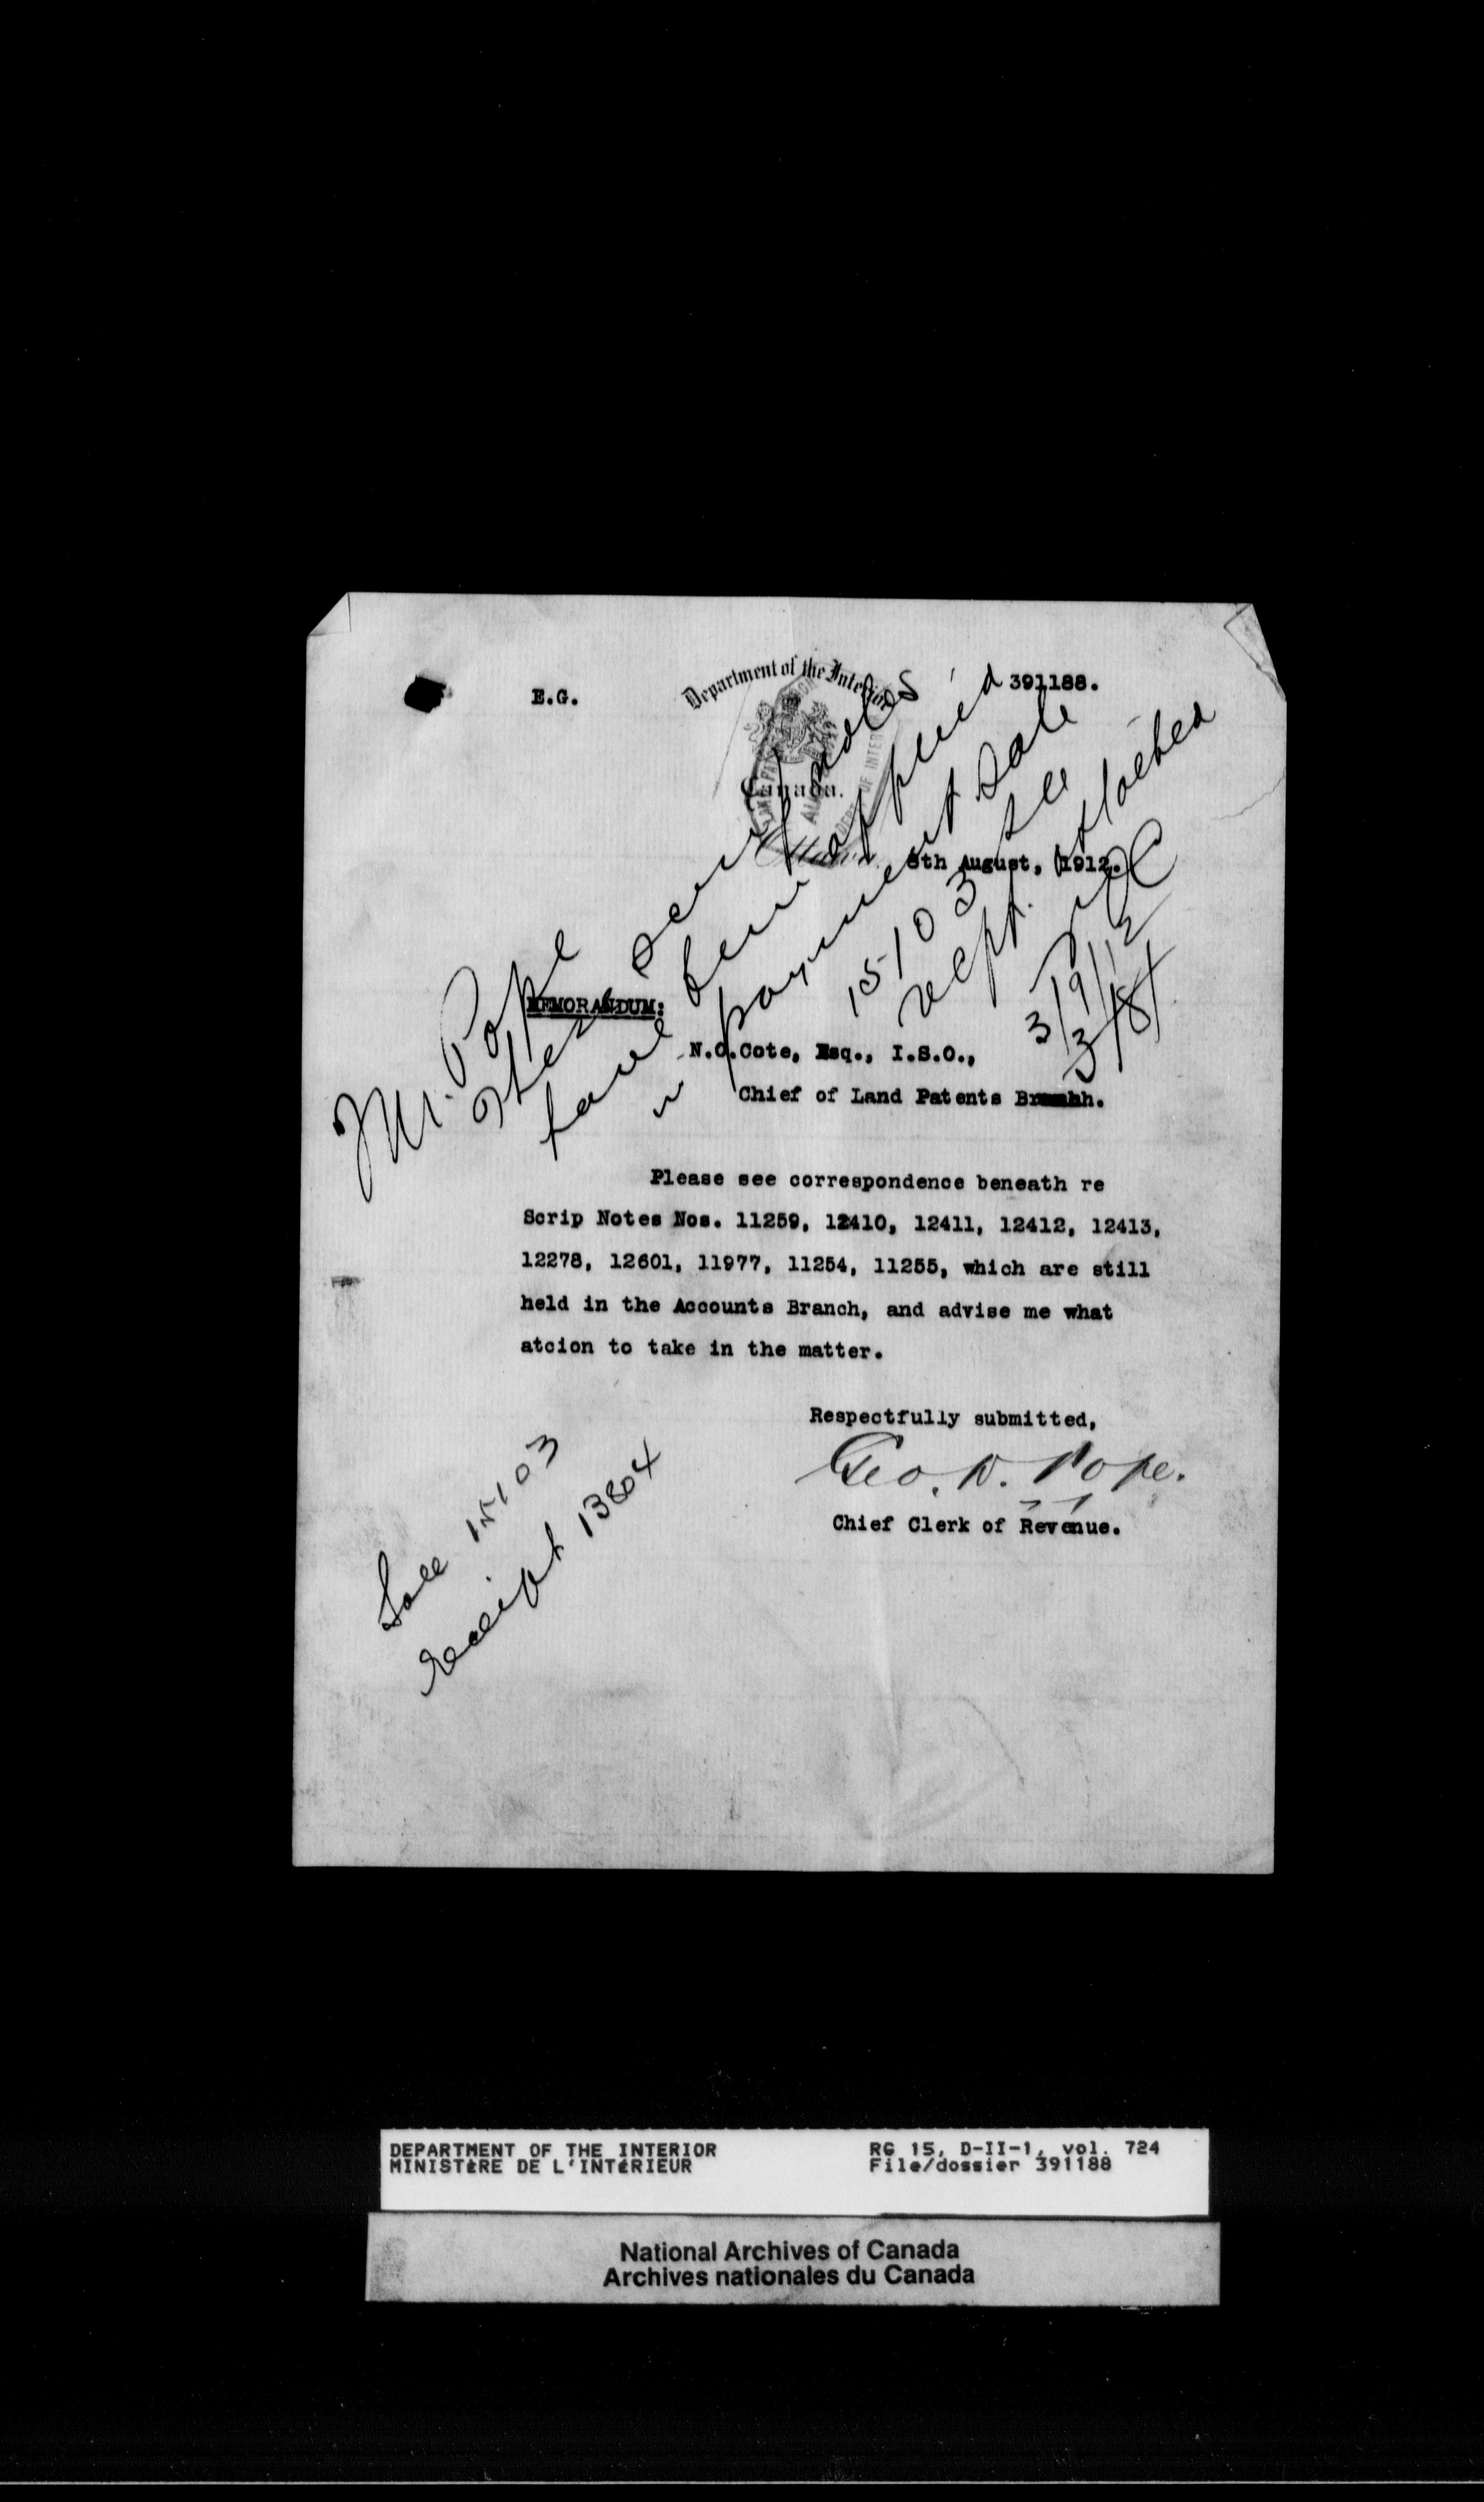 E.G.
Department of the Interior
391188.
Canada.
Ottawa, 8th August, 1912.
MEMORANDUM:
N.O.Cote, Esq., I.S.O.,
Chief of Land Patents Branhh.
Please see correspondence beneath re
Scrip Notes Nos. 11259, 12410, 12411, 12412, 12413,
12278, 12601, 11977, 11254, 11255, which are still
held in the Accounts Branch, and advise me what
atcion to take in the matter.
Respectfully submitted,
Geo. D. Pope.
Chief Clerk of Revenue.
Mr. Pope
These scrip notes
have been applied
in payment Sale
15103 see
recpt. attached
NOC
3/9/12
Sale 15103
receipt 13804
DEPARTMENT OF THE INTERIOR
MINISTÈRE DE L'INTÉRIEUR
RG 15, D-II-1, vol. 724
File/dossier 391188
National Archives of Canada
Archives nationales du Canada